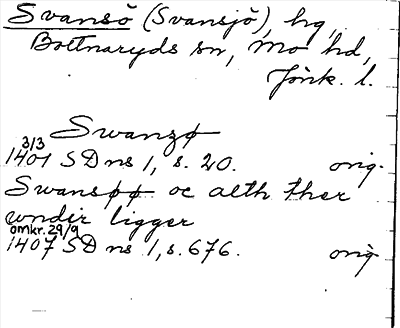 Svansö (Svansjö), hg,
Bottnaryds sn, Mo hd,
Jönk. l.
Swanzø
3/3
1401 SD ns 1, s. 20. orig.
Swansøø oc alth ther
wndir ligger
omkr. 29/9
1407 SD ns 1, s. 676. orig.